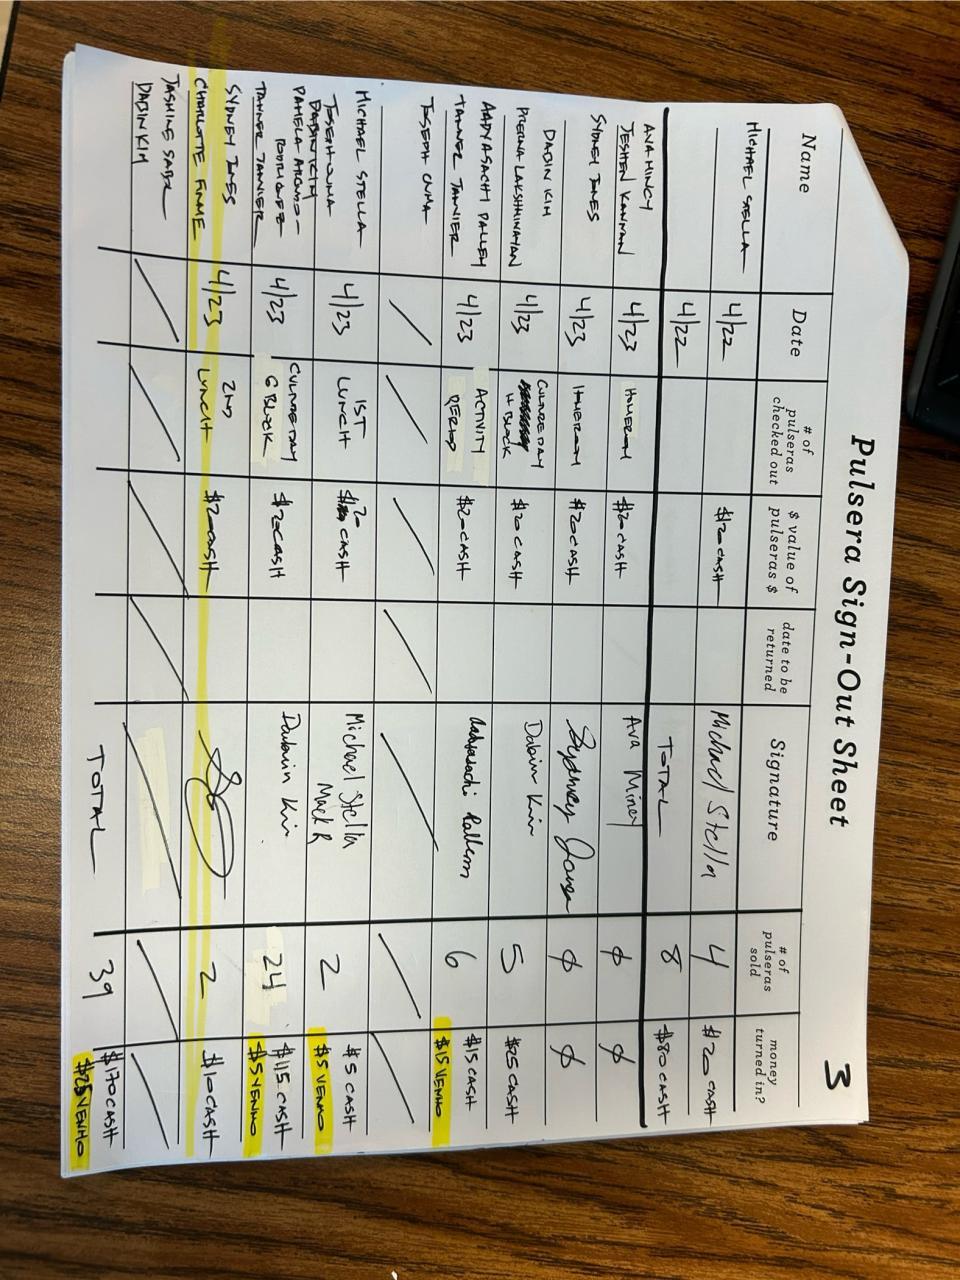 Pulsera Sign-Out Sheet
3
Name
Date
# of pulseras checked out
$ value of pulseras $
date to be returned
Signature
# of pulseras sold
money turned in?
MICHAEL STELLA
4/22
$20 CASH
Michael Stella
4
$20 CASH
4/22
TOTAL
8
$80 CASH
AVA MINCY
JESHEN KANNAN
4/23
HOMEROOM
$20 CASH
Ava Mincy
∅
∅
SYDNEY JONES
4/23
HOMEROOM
$20 CASH
Sydney Jones
∅
∅
DABIN KIM
PRERNA LAKSHMINAYAN
4/23
CULTURE DAY
H BLOCK
$20 CASH
Dabin Kim
5
$25 CASH
AADYASACHI PALLEM
TANNER TANNIER
4/23
ACTIVITY
PERIOD
$20 CASH
6
$15 CASH
$15 VENMO
JOSEPH
MICHAEL STELLA
JOSEPH
4/23
1ST
LUNCH
$20 CASH
Michael Stella
Mack R
2
$5 CASH
$5 VENMO
DABIN KIM
PAMELA
RODRIGUEZ
TANNER TANNIER
4/23
CULTURE DAY
G BLOCK
$20 CASH
Dabin Kim
24
$115 CASH
$5 VENMO
SYDNEY JONES
CHARLOTTE
4/23
2ND
LUNCH
$20 CASH
2
$10 CASH
JASMINE
DABIN KIM
TOTAL
39
$170 CASH
$25 VENMO